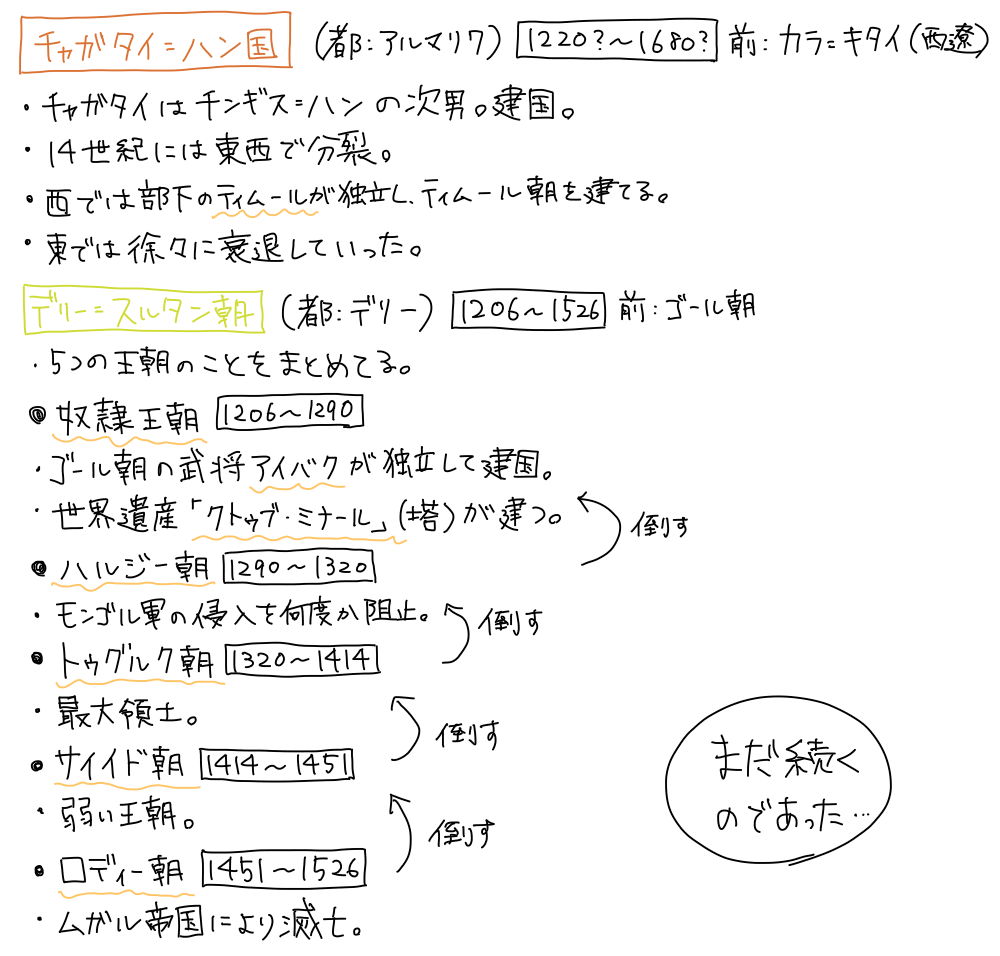 チャガタイ=ハン国 (都:アルマリク) 1220?～1680? 前:カラ=キタイ(西遼)
・チャガタイはチンギス=ハンの次男。建国。
・14世紀には東西で分裂。
・西では部下のティムールが独立し、ティムール朝を建てる。
・東では徐々に衰退していった。
デリー=スルタン朝 (都:デリー) 1206～1526 前:ゴール朝
・5つの王朝のことをまとめてる。
●奴隷王朝 1206～1290
・ゴール朝の武将アイバクが独立して建国。
・世界遺産「クトゥブ・ミナール」(塔)が建つ。
倒す
●ハルジー朝 1290～1320
・モンゴル軍の侵入を何度か阻止。
倒す
●トゥグルク朝 1320～1414
・最大領土。
倒す
●サイイド朝 1414～1451
・弱い王朝。
倒す
●ロディー朝 1451～1526
・ムガル帝国により滅亡。
まだ続く
のであった…